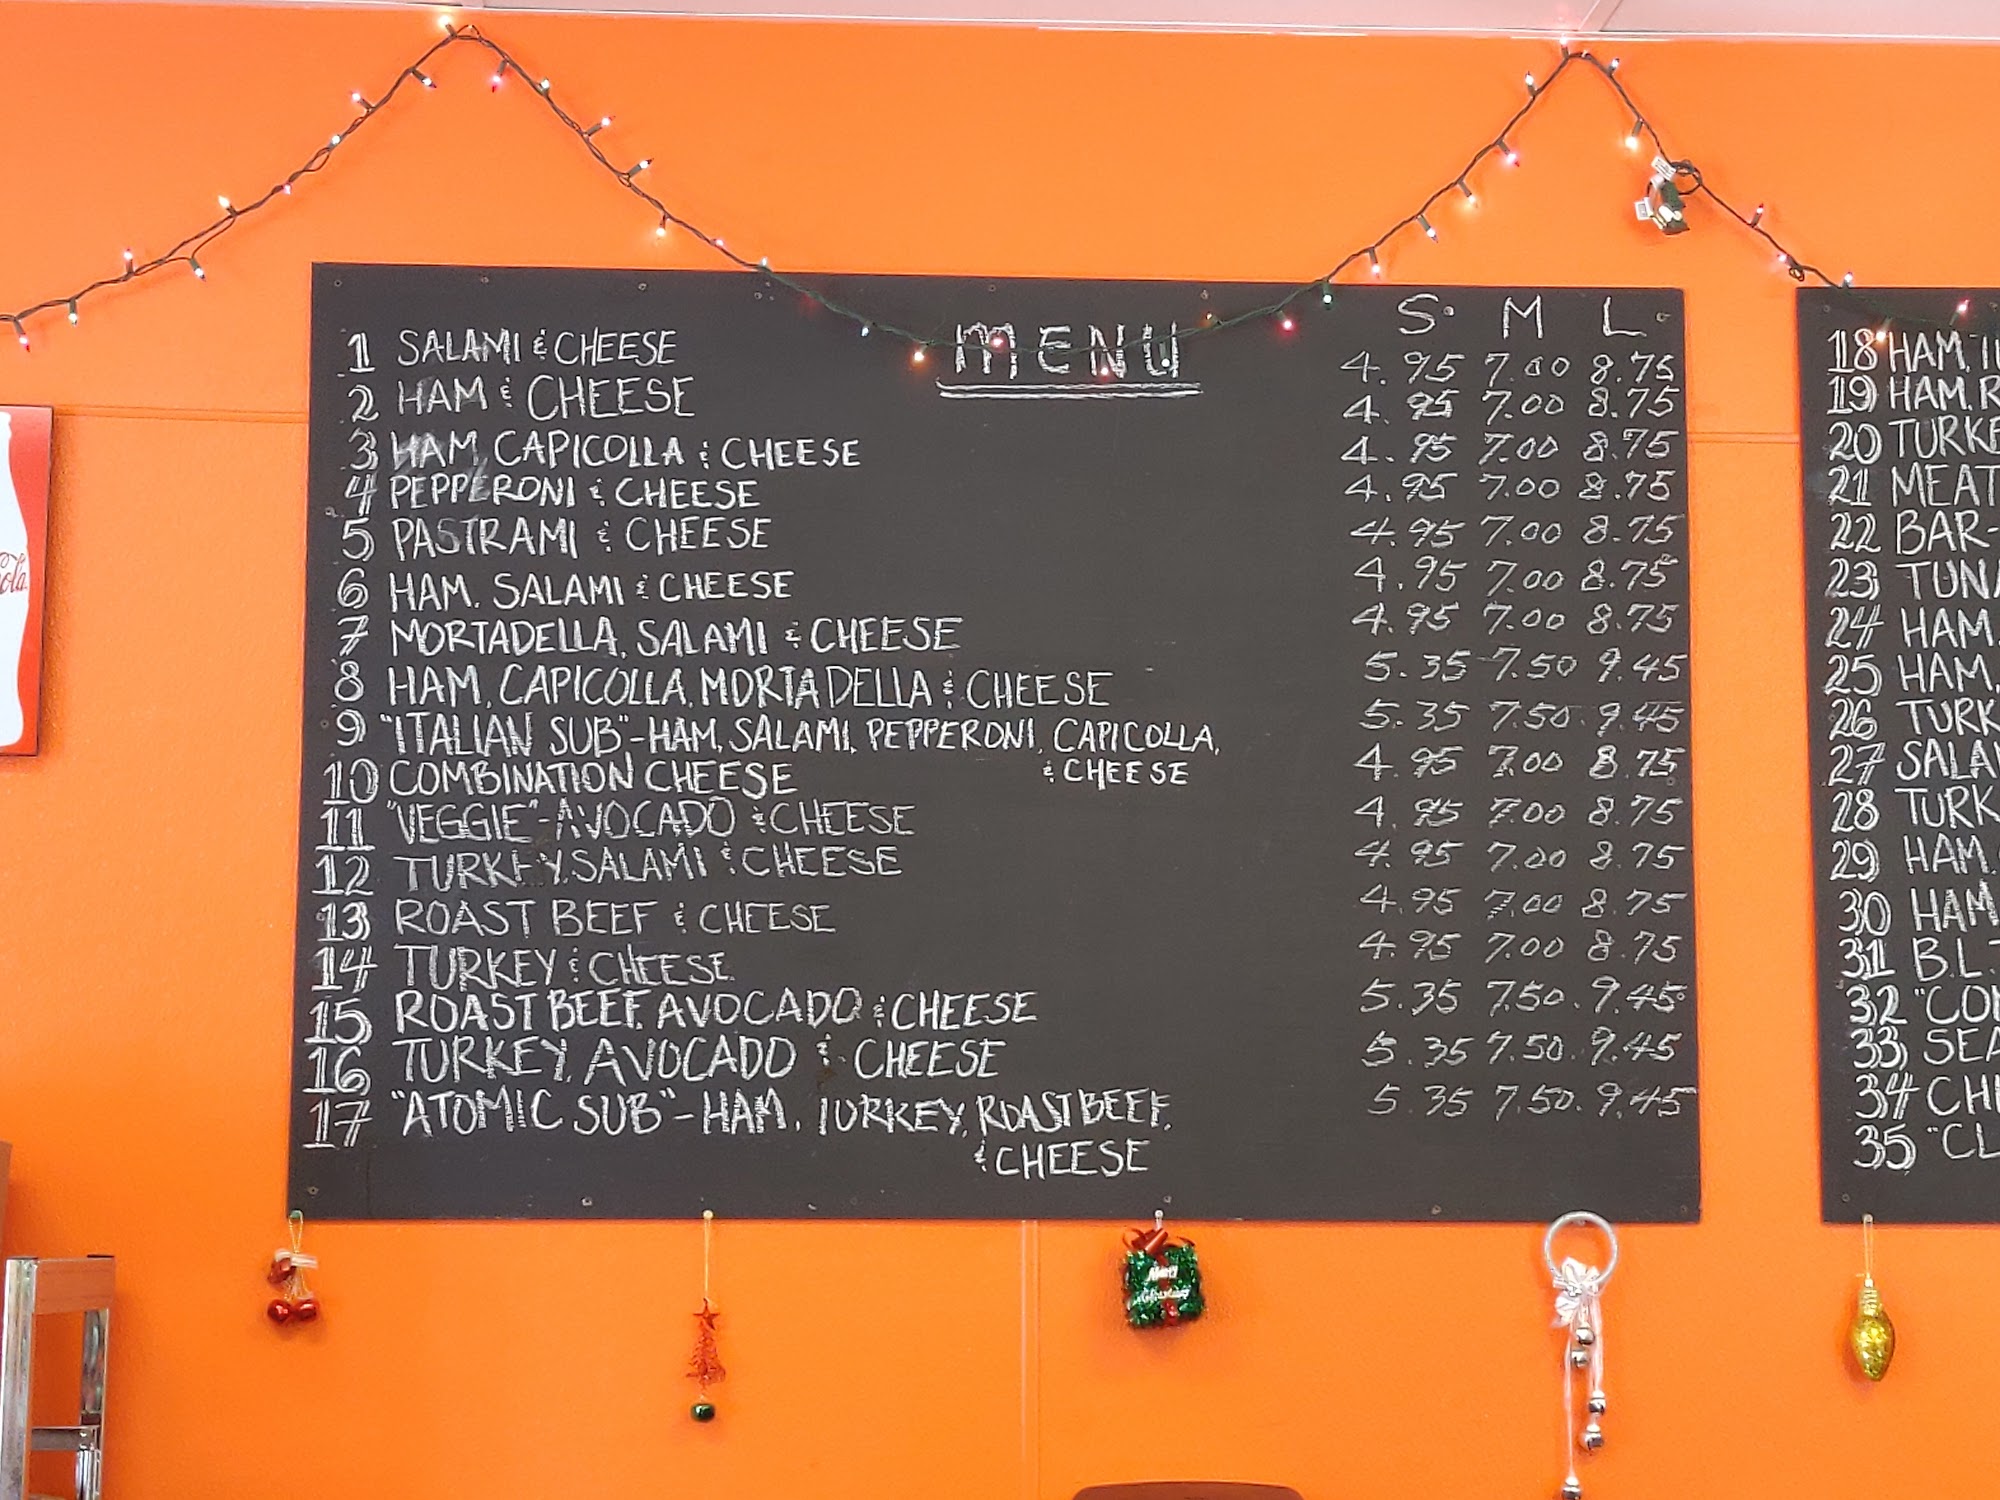 MENU
S. M L.
1 SALAMI & CHEESE 4.95 7.00 8.75
2 HAM & CHEESE 4.95 7.00 8.75
3 HAM, CAPICOLLA & CHEESE 4.95 7.00 8.75
4 PEPPERONI & CHEESE 4.95 7.00 8.75
5 PASTRAMI & CHEESE 4.95 7.00 8.75
6 HAM, SALAMI & CHEESE 4.95 7.00 8.75
7 MORTADELLA, SALAMI & CHEESE 4.95 7.00 8.75
8 HAM, CAPICOLLA, MORTADELLA & CHEESE 5.35 7.50 9.45
9 "ITALIAN SUB" - HAM, SALAMI, PEPPERONI, CAPICOLLA, 5.35 7.50 9.45
& CHEESE
10 COMBINATION CHEESE 4.95 7.00 8.75
11 "VEGGIE" - AVOCADO & CHEESE 4.95 7.00 8.75
12 TURKEY, SALAMI & CHEESE 4.95 7.00 8.75
13 ROAST BEEF & CHEESE 4.95 7.00 8.75
14 TURKEY & CHEESE 4.95 7.00 8.75
15 ROAST BEEF, AVOCADO & CHEESE 5.35 7.50 9.45
16 TURKEY, AVOCADO & CHEESE 5.35 7.50 9.45
17 "ATOMIC SUB" - HAM, TURKEY, ROAST BEEF, 5.35 7.50 9.45
& CHEESE
18 HAM,
19 HAM, R
20 TURKE
21 MEAT
22 BAR-
23 TUNA
24 HAM,
25 HAM,
26 TURK
27 SALA
28 TURK
29 HAM,
30 HAM
31 B.L.
32 "CO
33 SEA
34 CH
35 "CL
ola
Merry Christmas